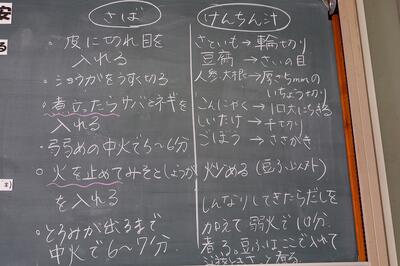 さば
・皮に切れ目を
入れる
・ショウガをうすく切る
・煮立ったらサバとネギを
入れる
・弱めの中火で5~6分
・火を止めてみそとしょうが
を入れる
・とろみが出るまで
中火で6~7分
けんちん汁
さといも→輪切り
豆腐→さいの目
人参大根→厚さ5mmの
いちょう切り
こんにゃく→1口大にちぎる
しいたけ→千切り
ごぼう→ささがき
炒める(豆ふ以外)
しんなりしてきたらだしを
加えて弱火で10分
煮る。豆ふはここで入れて